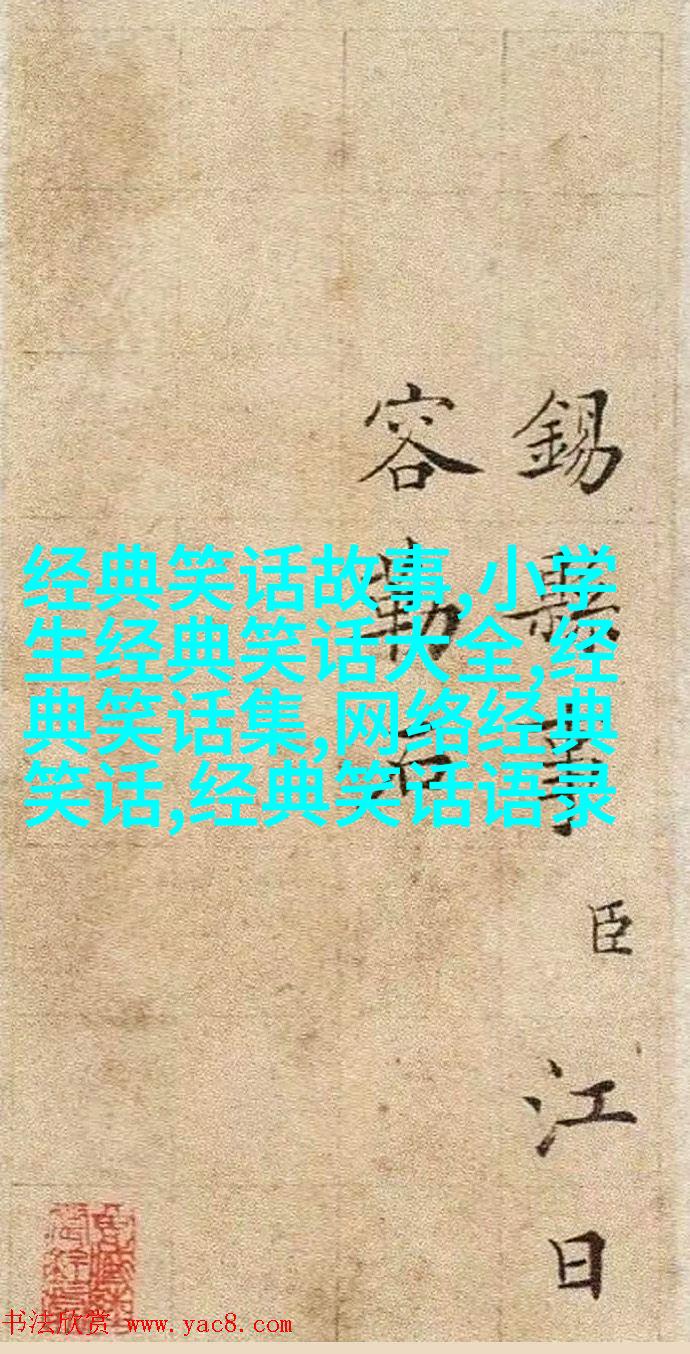 錫縣事臣江日
容勒石
经典笑话故事,小学
生经典笑话大全,经
典笑话集,网络经典
笑话,经典笑话语录
书法欣赏 www.yac8.com